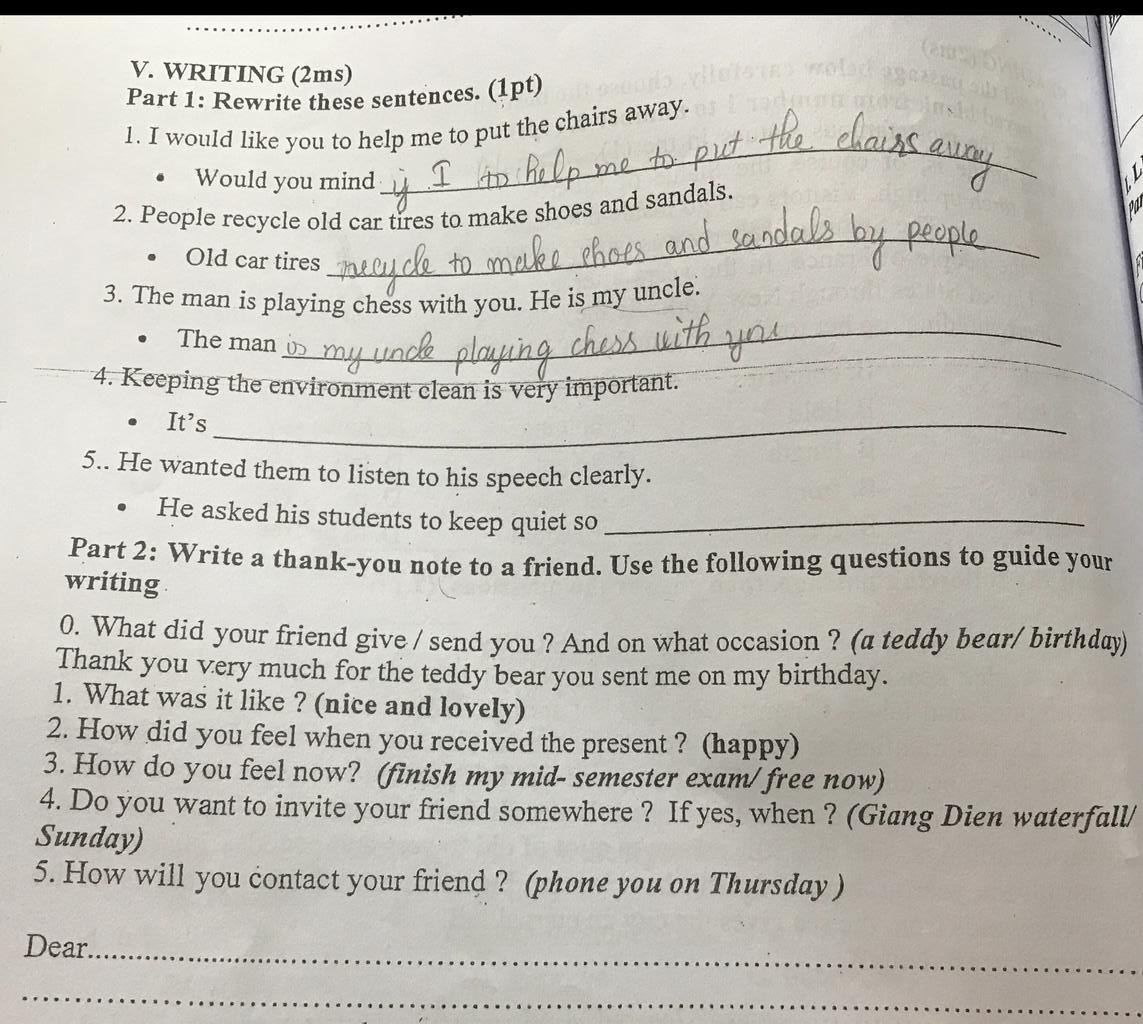 V. WRITING (2ms)
Part 1: Rewrite these sentences. (1pt)
1. I would like you to help me to put the chairs away.
• Would you mind if I to help me to put the chairs away
2. People recycle old car tires to make shoes and sandals.
• Old car tires recycle to make shoes and sandals by people
3. The man is playing chess with you. He is my uncle.
• The man is my uncle playing chess with you
4. Keeping the environment clean is very important.
• It's
5.. He wanted them to listen to his speech clearly.
• He asked his students to keep quiet so
Part 2: Write a thank-you note to a friend. Use the following questions to guide your
writing
0. What did your friend give / send you ? And on what occasion ? (a teddy bear/ birthday)
Thank you very much for the teddy bear you sent me on my birthday.
1. What was it like ? (nice and lovely)
2. How did you feel when you received the present ? (happy)
3. How do you feel now? (finish my mid- semester exam/ free now)
4. Do you want to invite your friend somewhere ? If yes, when ? (Giang Dien waterfall/
Sunday)
5. How will you contact your friend ? (phone you on Thursday )
Dear